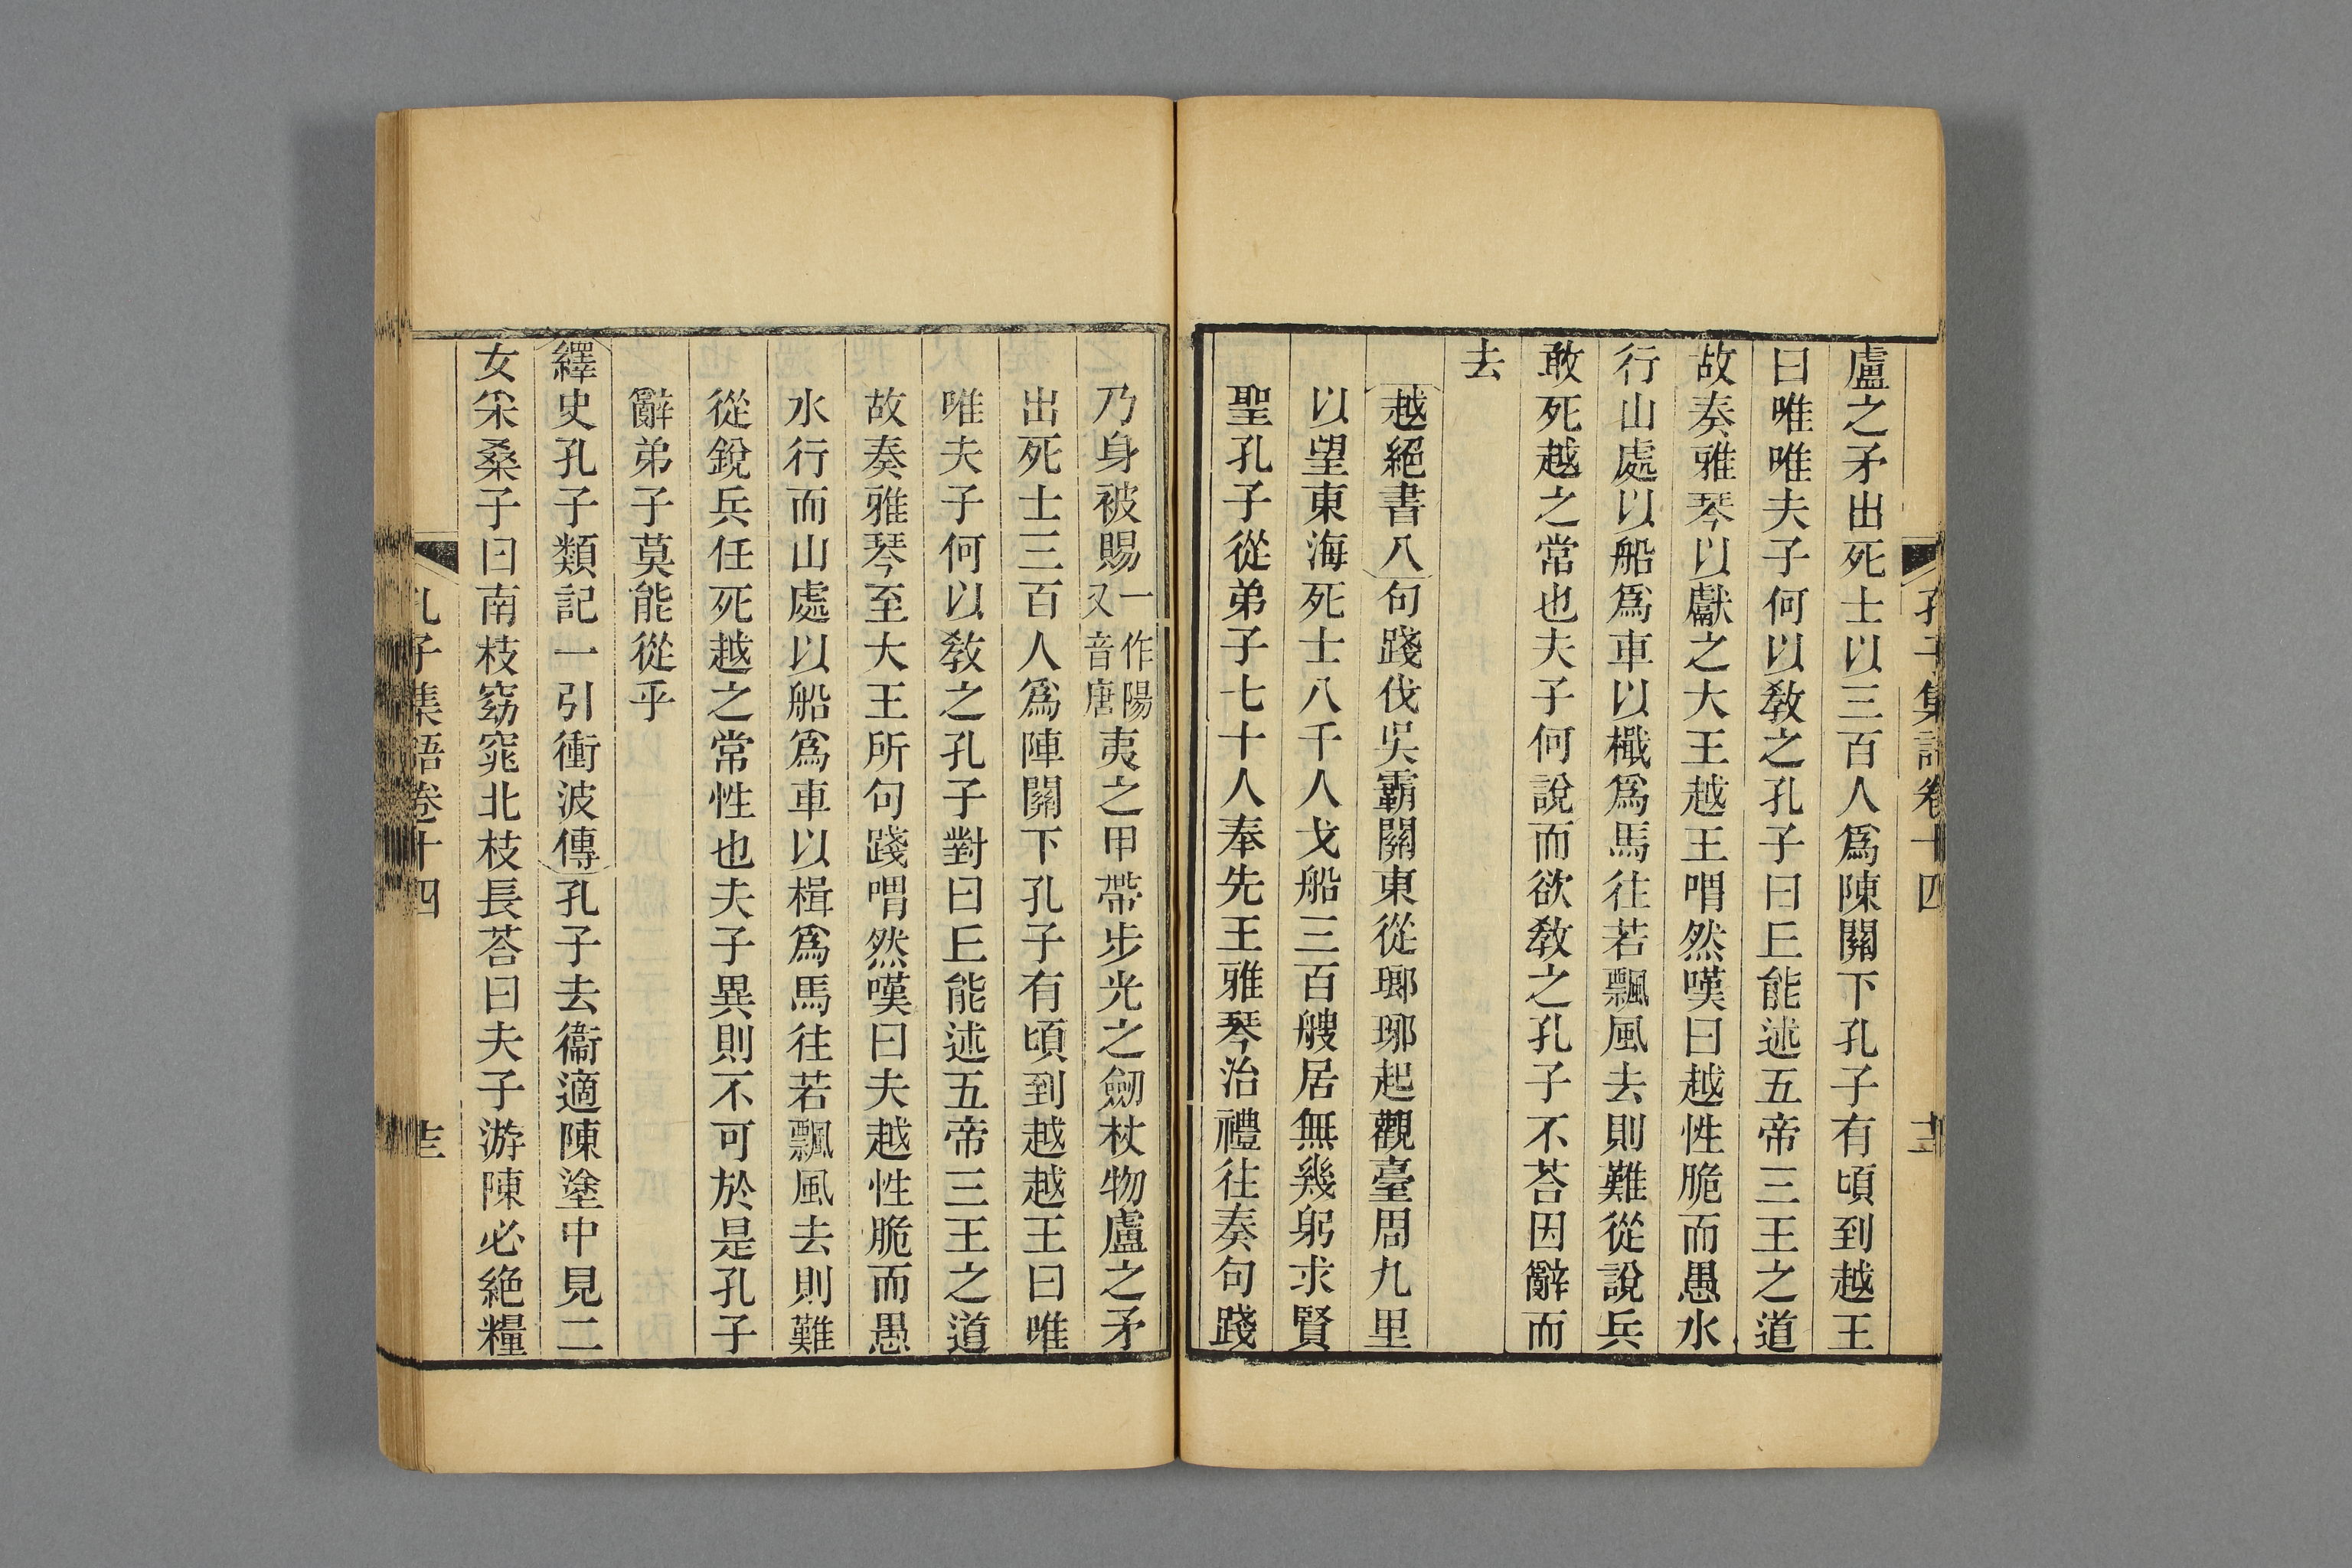 孔子集語卷十四
盧之矛出死士以三百人爲陳關下孔子有頃到越王
曰唯唯夫子何以敎之孔子曰丘能述五帝三王之道
故奏雅琴以獻之大王越王喟然嘆曰越性脆而愚水
行山處以船爲車以檝爲馬往若飄風去則難從說兵
敢死越之常也夫子何說而欲敎之孔子不荅因辭而
去
越絕書八句踐伐吳霸關東從瑯琊起觀臺周九里
以望東海死士八千人戈船三百艘居無幾躬求賢
聖孔子從弟子七十人奉先王雅琴治禮往奏句踐
乃身被賜一作陽又音唐夷之甲帶步光之劒杖物盧之矛
出死士三百人爲陣關下孔子有頃到越越王曰唯
唯夫子何以敎之孔子對曰丘能述五帝三王之道
故奏雅琴至大王所句踐喟然嘆曰夫越性脆而愚
水行而山處以船爲車以楫爲馬往若飄風去則難
從銳兵任死越之常性也夫子異則不可於是孔子
辭弟子莫能從乎
繹史孔子類記一引衝波傳孔子去衞適陳塗中見二
女采桑子曰南枝窈窕北枝長荅曰夫子游陳必絕糧
孔子集語卷十四